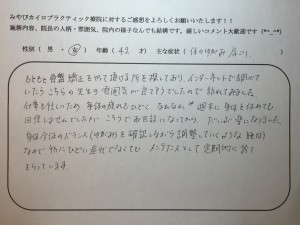 みやびカイロプラクティック療院に対するご感想をよろしくお願いいたします!!
施術内容、院長の人柄・雰囲気、院内の様子なんでも結構です。嬉しいコメント大歓迎です(*^_^*)
性別( 男 ・ 女 ) 年齢( 42 才) 主な症状( 体のゆがみ 肩こり )
もともと骨盤矯正をやって頂ける所を探しており、インターネットで
いたらこちらの先生の雰囲気が良さそうでしたので訪れてみました。
仕事も忙しいため身体の疲れもひどく、週末に身体を休めても
回復しませんでしたが こちらでお世話になってから、だいぶ楽になりました。
身体全体のバランス(ゆがみ)を確認しながら調整していくような
なので特にひどい症状でなくても メンテナンスとして定期的に
もらっています